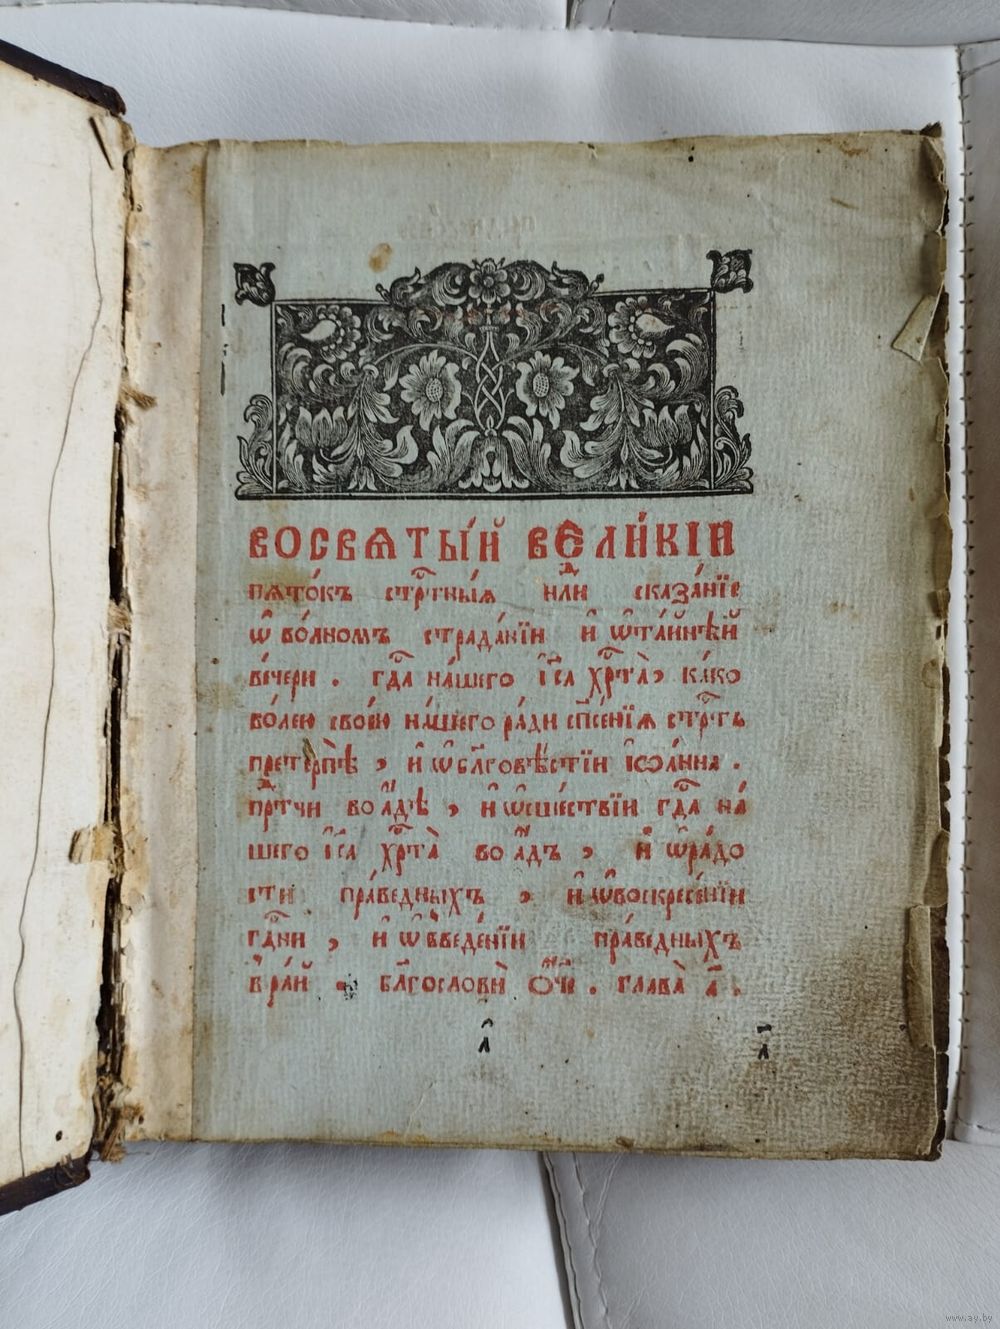 ВОСВѦТЫ́Й ВЕЛИ́КІИ
пѧто́къ стрⷭ҇тны́ѧ нⷣли сказа́нїе
ѡ҆во́лномъ страда́нїи и҆ ѡ҆та́йнѣй
ве́чери . гдⷭ҇а на́шего і҆і҃са хрⷭ҇та̀, ка́ко
во́лею свое́ю на́шего ра́ди сп҃се́нїѧ стрⷭ҇ть
претерпѣ̀ , и҆ ѡ҆бл҃говѣ́стїи і҆ѡа́нна .
прⷣтчи во а҆́дѣ , и҆ ѡ҆сше́ствїи гдⷭ҇а на́
шего і҆і҃са хрⷭ҇та̀ во а҆́дъ , и҆ ѡ҆ра́до
сти пра́ведныхъ , и҆ ѡ҆воскресе́нїи
гдⷭ҇ни , и҆ ѡ҆введе́нїи пра́ведныхъ
в̾ра́й . бл҃гословѝ ѻ҆́ч҃е . глава̀ а҃ .
а҃
www.ay.by